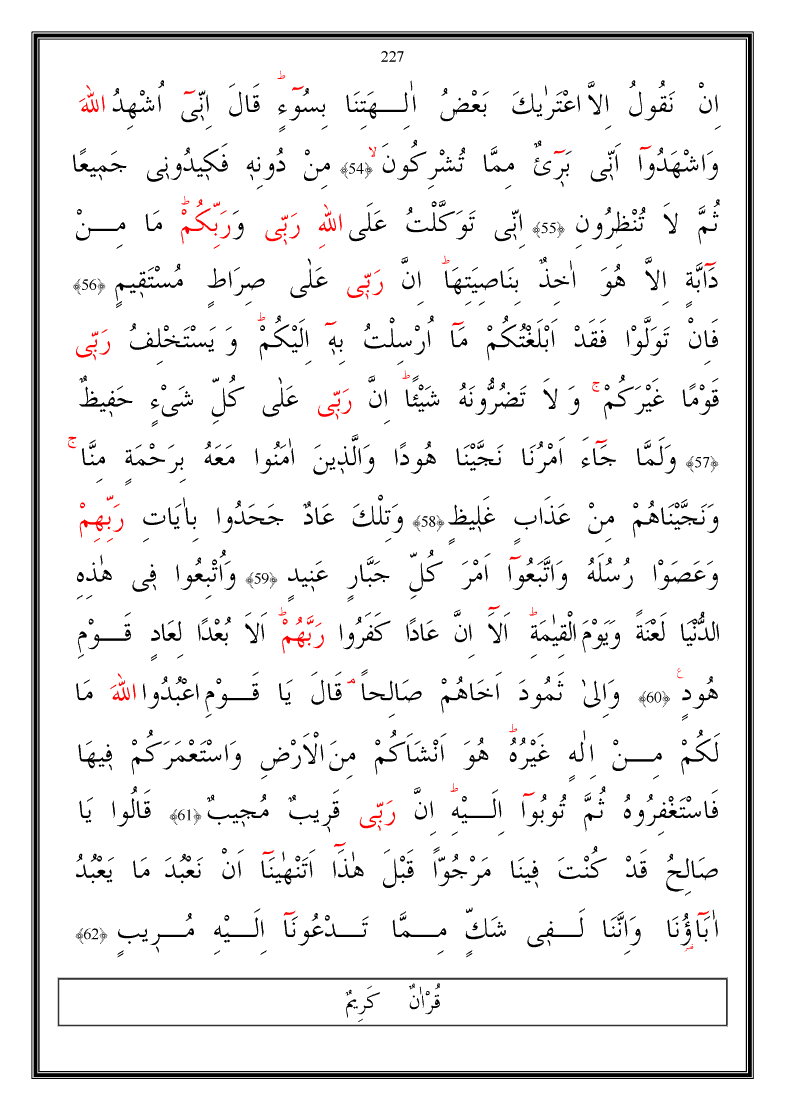 227
اِنْ نَقُولُ اِلاَّ اعْتَرٰيكَ بَعْضُ اٰلِـــهَتِنَا بِسُوٓءٍۜ قَالَ اِنّ۪ٓى اُشْهِدُ اللّٰهَ
وَاشْهَدُوٓا اَنّ۪ى بَر۪ٓىٌٔ مِمَّا تُشْرِكُونَۙ ﴿54﴾ مِنْ دُونِه۪ فَك۪يدُون۪ى جَم۪يعًا
ثُمَّ لاَ تُنْظِرُونِ ﴿55﴾ اِنّ۪ى تَوَكَّلْتُ عَلَى اللّٰهِ رَبّ۪ى وَرَبِّكُمْۜ مَا مِـــنْ
دَٓابَّةٍ اِلاَّ هُوَ اٰخِذٌ بِنَاصِيَتِهَاۜ اِنَّ رَبّ۪ى عَلٰى صِرَاطٍ مُسْتَق۪يمٍ ﴿56﴾
فَاِنْ تَوَلَّوْا فَقَدْ اَبْلَغْتُكُمْ مَٓا اُرْسِلْتُ بِه۪ٓ اِلَيْكُمْۜ وَ يَسْتَخْلِفُ رَبّ۪ى
قَوْمًا غَيْرَكُمْۚ وَ لاَ تَضُرُّونَهُ شَيْئًاۜ اِنَّ رَبّ۪ى عَلٰى كُلِّ شَىْءٍ حَف۪يظٌ
﴿57﴾ وَلَمَّا جَٓاءَ اَمْرُنَا نَجَّيْنَا هُودًا وَالَّذ۪ينَ اٰمَنُوا مَعَهُ بِرَحْمَةٍ مِنَّاۚ
وَنَجَّيْنَاهُمْ مِنْ عَذَابٍ غَل۪يظٍ ﴿58﴾ وَتِلْكَ عَادٌ جَحَدُوا بِاٰيَاتِ رَبِّهِمْ
وَعَصَوْا رُسُلَهُ وَاتَّبَعُوٓا اَمْرَ كُلِّ جَبَّارٍ عَن۪يدٍ ﴿59﴾ وَاُتْبِعُوا ف۪ى هٰذِهِ
الدُّنْيَا لَعْنَةً وَيَوْمَ الْقِيٰمَةِۜ اَلَٓا اِنَّ عَادًا كَفَرُوا رَبَّهُمْۜ اَلاَ بُعْدًا لِعَادٍ قَـــوْمِ
هُودٍ۟ ﴿60﴾ وَاِلىٰ ثَمُودَ اَخَاهُمْ صَالِحاًۢ قَالَ يَا قَـــوْمِ اعْبُدُوا اللّٰهَ مَا
لَكُمْ مِـــنْ اِلٰهٍ غَيْرُهُۜ هُوَ اَنْشَاَكُمْ مِنَ الْاَرْضِ وَاسْتَعْمَرَكُمْ ف۪يهَا
فَاسْتَغْفِرُوهُ ثُمَّ تُوبُوٓا اِلَـــيْهِۜ اِنَّ رَبّ۪ى قَر۪يبٌ مُج۪يبٌ ﴿61﴾ قَالُوا يَا
صَالِحُ قَدْ كُنْتَ ف۪ينَا مَرْجُوًّا قَبْلَ هٰذَٓا اَتَنْهٰينَٓا اَنْ نَعْبُدَ مَا يَعْبُدُ
اٰبَٓاؤُ۬نَا وَاِنَّنَا لَـــف۪ى شَكٍّ مِـــمَّا تَـــدْعُونَٓا اِلَـــيْهِ مُـــر۪يبٍ ﴿62﴾
قُرْاٰنٌ كَرِيمٌ